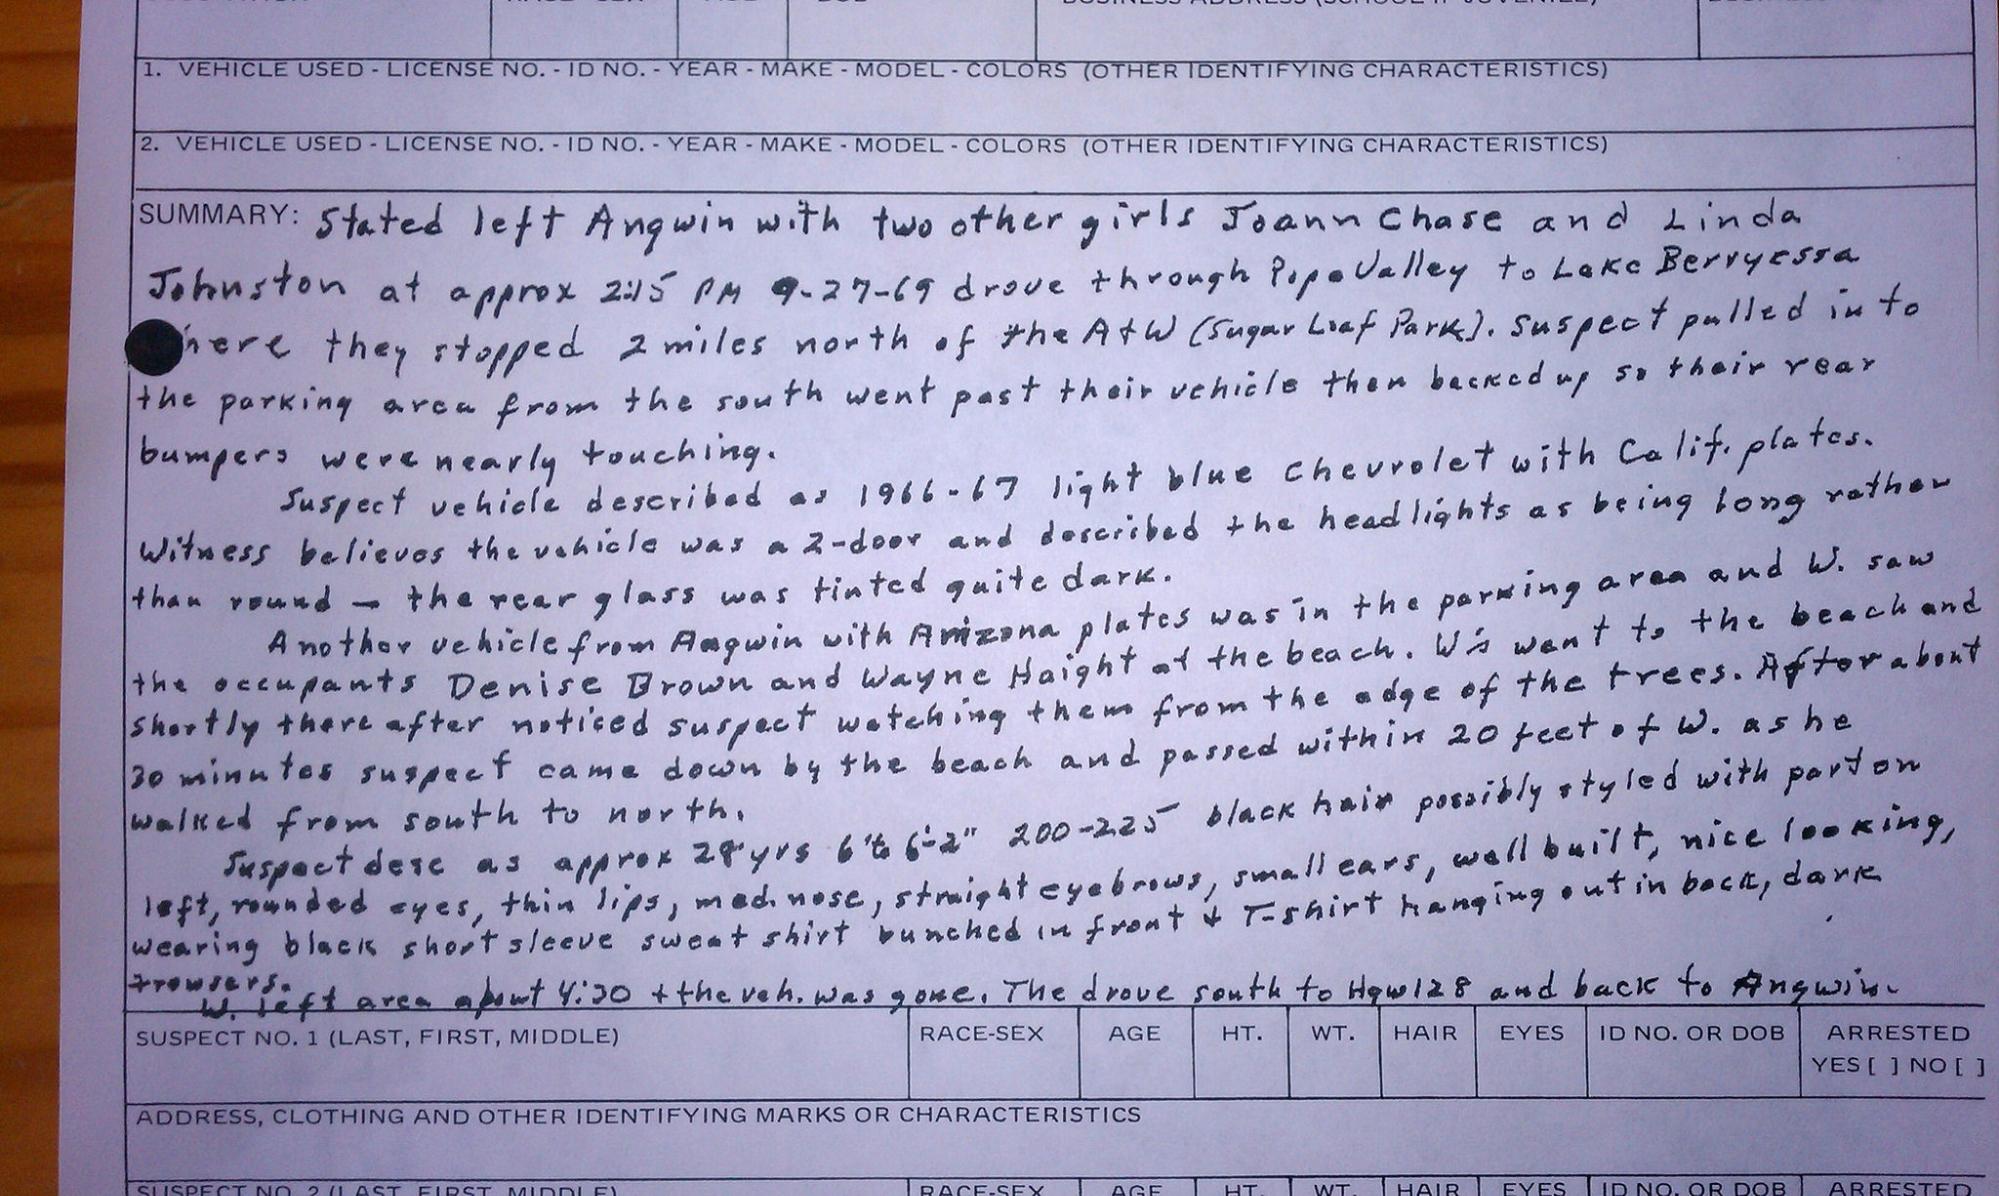 BUSINESS ADDRESS (SCHOOL IF JUVENILE)
1. VEHICLE USED - LICENSE NO. - ID NO. - YEAR - MAKE - MODEL - COLORS (OTHER IDENTIFYING CHARACTERISTICS)
2. VEHICLE USED - LICENSE NO. - ID NO. - YEAR - MAKE - MODEL - COLORS (OTHER IDENTIFYING CHARACTERISTICS)
SUMMARY: Stated left Angwin with two other girls Joann Chase and Linda
Johnston at approx 2:15 PM 9-27-69 drove through Pope Valley to Lake Berryessa
here they stopped 2 miles north of the A+W (Sugar Loaf Park). Suspect pulled in to
the parking area from the south went past their vehicle then backed up so their rear
bumpers were nearly touching.
Suspect vehicle described as 1966-67 light blue Chevrolet with Calif. plates.
Witness believes the vehicle was a 2-door and described the headlights as being long rather
than round - the rear glass was tinted quite dark.
Another vehicle from Angwin with Arizona plates was in the parking area and W. saw
the occupants Denise Brown and Wayne Haight at the beach. W's went to the beach and
shortly there after noticed suspect watching them from the edge of the trees. After about
30 minutes suspect came down by the beach and passed within 20 feet of W. as he
walked from south to north.
Suspect desc as approx 28 yrs 6' to 6'-2" 200-225 black hair possibly styled with part on
left, rounded eyes, thin lips, med. nose, straight eyebrows, small ears, well built, nice looking,
wearing black short sleeve sweat shirt bunched in front + T-shirt hanging out in back, dark
trousers.
W. left area about 4:30 + the veh. was gone. The drove south to Hgw 128 and back to Angwin.
SUSPECT NO. 1 (LAST, FIRST, MIDDLE) RACE-SEX AGE HT. WT. HAIR EYES ID NO. OR DOB ARRESTED
YES [ ] NO [ ]
ADDRESS, CLOTHING AND OTHER IDENTIFYING MARKS OR CHARACTERISTICS
SUSPECT NO. 2 (LAST, FIRST, MIDDLE) RACE-SEX AGE HT. WT. HAIR EYES ID NO. OR DOB ARRESTED